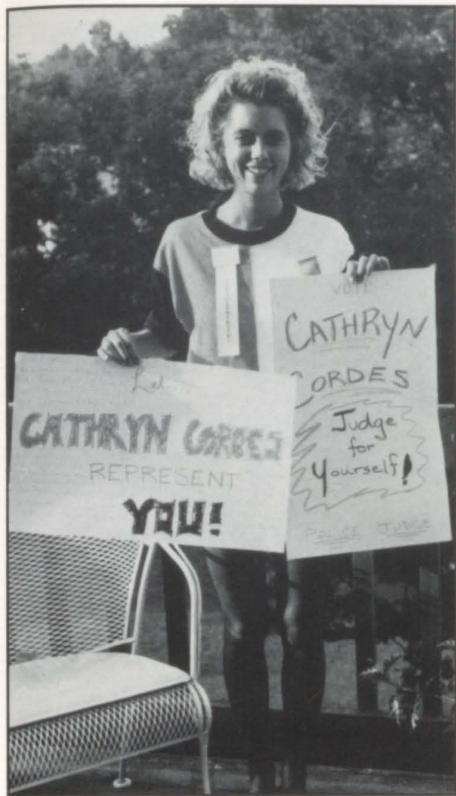 Let
CATHRYN CORDES
REPRESENT
YOU!
VOTE
CATHRYN
CORDES
Judge
for
Yourself!
POLICE JUDGE